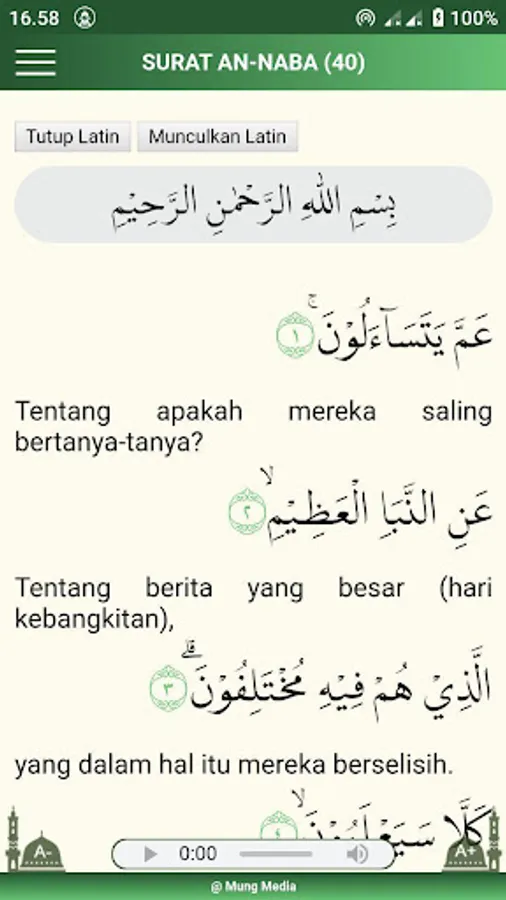 16.58 100%
SURAT AN-NABA (40)
Tutup Latin Munculkan Latin
بِسْمِ اللّٰهِ الرَّحْمٰنِ الرَّحِيْمِ
عَمَّ يَتَسَاۤءَلُوْنَۚ ١
Tentang apakah mereka saling
bertanya-tanya?
عَنِ النَّبَاِ الْعَظِيْمِۙ ٢
Tentang berita yang besar (hari
kebangkitan),
الَّذِيْ هُمْ فِيْهِ مُخْتَلِفُوْنَۗ ٣
yang dalam hal itu mereka berselisih.
كَلَّا سَيَعْلَمُوْنَۙ ٤
A- 0:00 A+
@ Mung Media